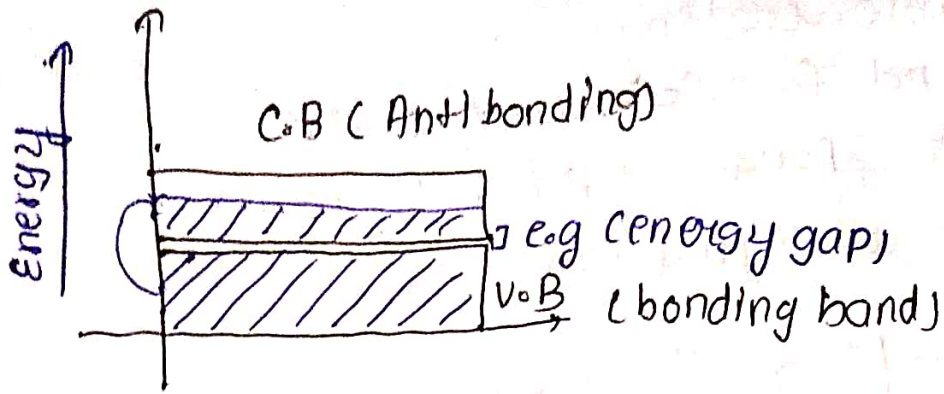 Energy
C.B ( Antibonding)
e.g (energy gap)
V.B (bonding band)